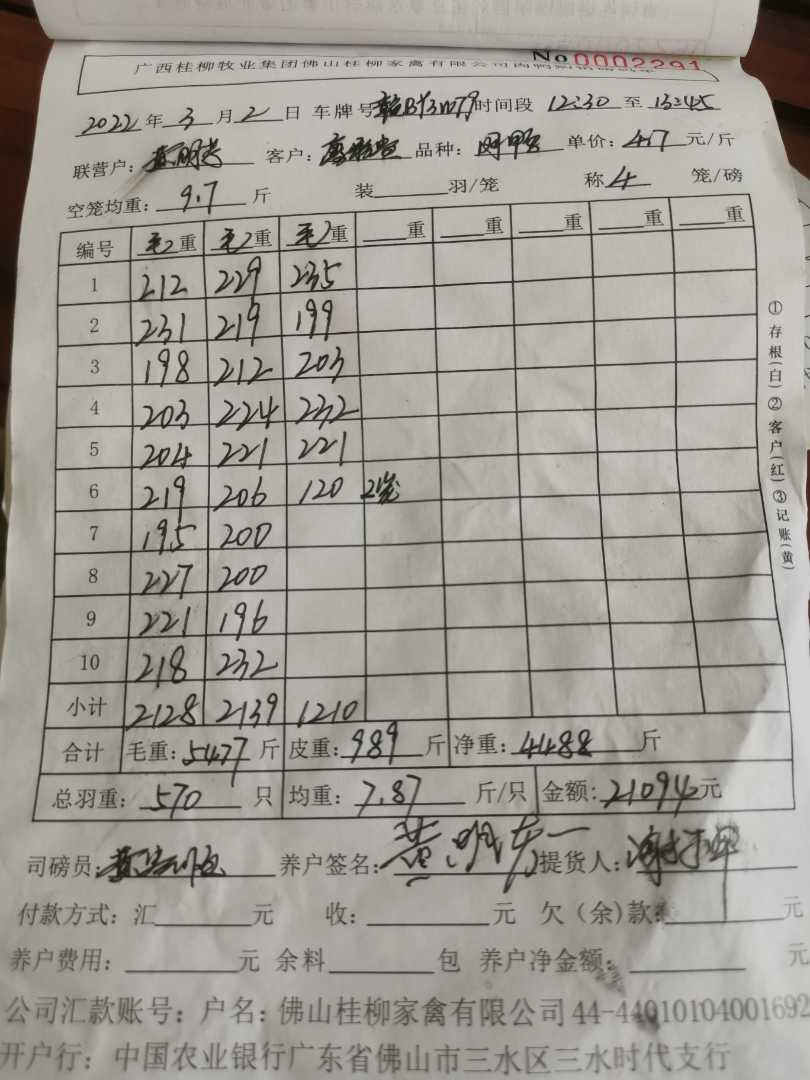 广西桂柳牧业集团佛山桂柳家禽有限公司肉鸭 No 0002291
2022年3月2日 车牌号 时间段 12:30 至 13:45
联营户: 客户: 品种: 单价: 4.7 元/斤
空笼均重: 9.7 斤 装 羽/笼 称 4 笼/磅
编号 毛2重 毛2重 毛2重 重 重 重 重 重
1 212 229 235
2 231 219 199
3 198 212 203
4 203 224 232
5 204 221 221
6 219 206 120 2笼
7 195 200
8 227 200
9 221 196
10 218 232
小计 2128 2139 1210
合计 毛重: 5477 斤 皮重: 989 斤 净重: 4488 斤
总羽重: 570 只 均重: 7.87 斤/只 金额: 21094元
司磅员: 养户签名: 黄明 提货人:
付款方式: 汇 元 收: 元 欠(余)款: 元
养户费用: 元 余料 包 养户净金额: 元
公司汇款账号: 户名: 佛山桂柳家禽有限公司 44-44010104001692
开户行: 中国农业银行广东省佛山市三水区三水时代支行
①存根(白)②客户(红)③记账(黄)